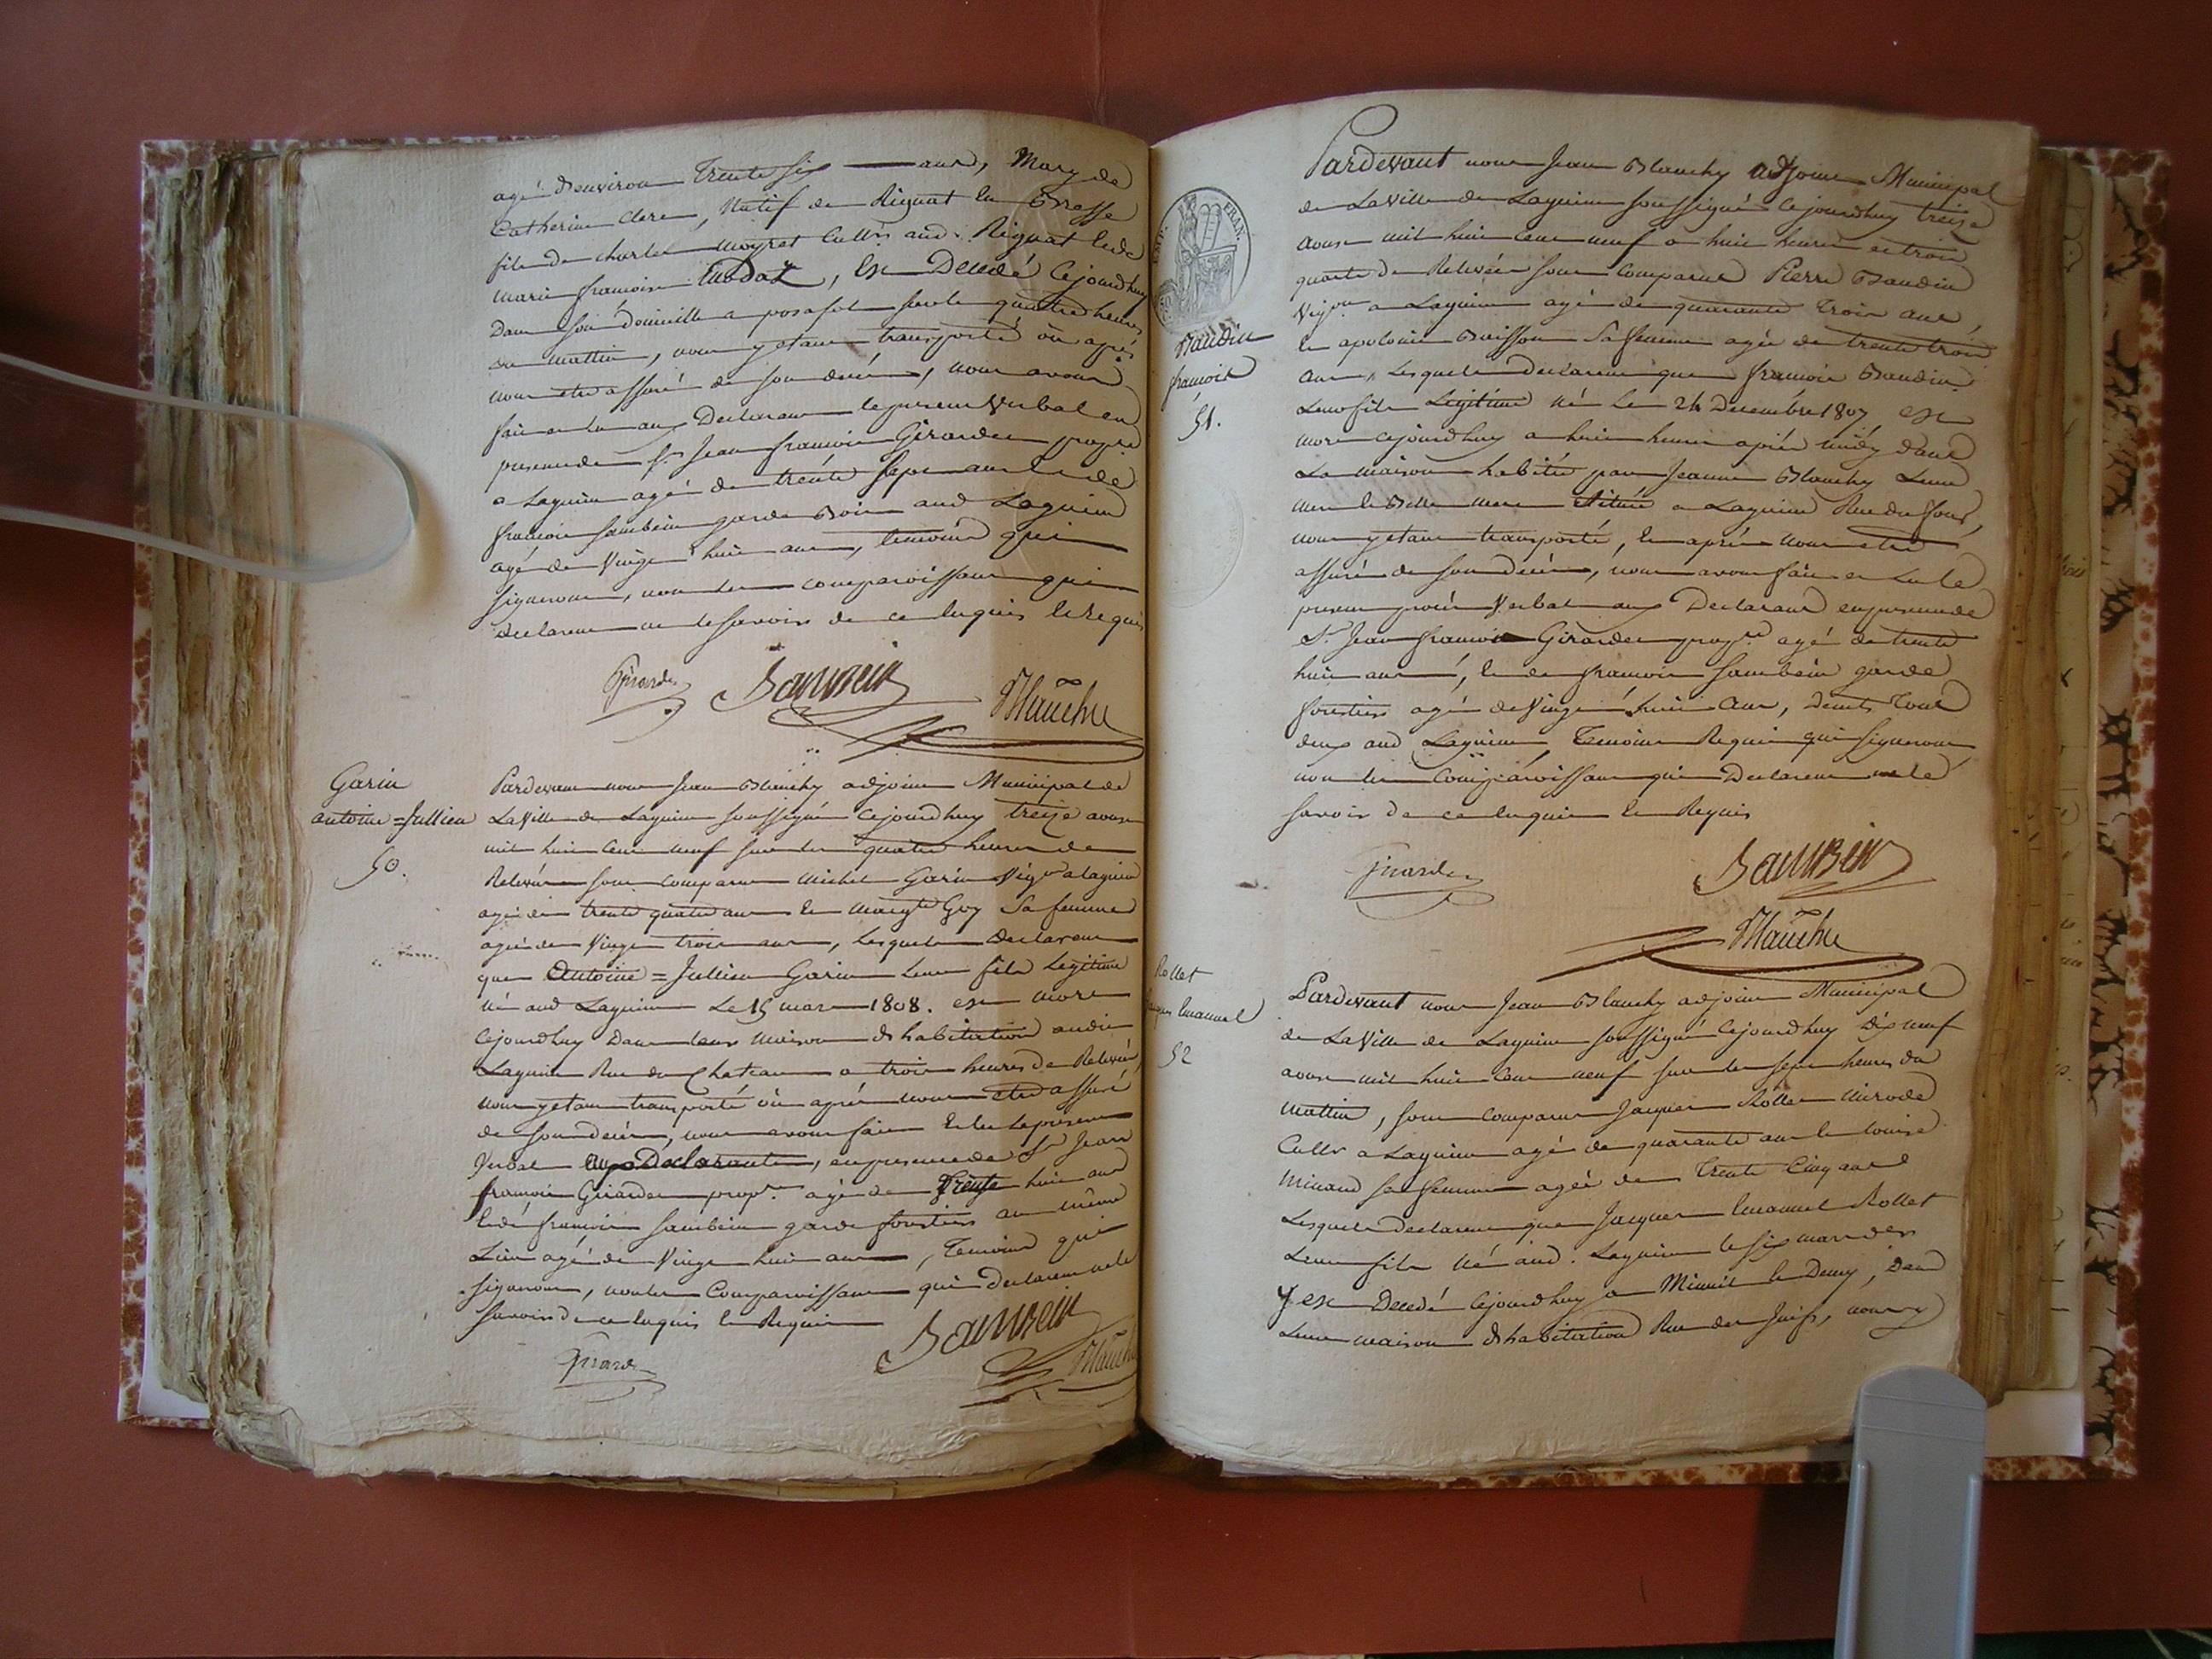 agé d'environ trente six ans, Mary de
Catherine Clerc, Natif de Rignat en Bresse
fils de charles moyret Cultr. aud. Rignat et de
marie francoise , Est Decedé Cejourdhuy
Dans son domicille a posafol sur les quatre heures
du mattin, nous y etant transporté où après
nous etre assuré de son decès, nous avons
fait et lu aux Declarans le present Verbal en
presence de sr. Jean francois Girardet propre.
a Lagnieu agé de trente sept ans et de
francois Saubein garde Bois aud Lagnieu
agé de Vingt huit ans, temoins qui
signeront, non les comparoissans qui
declarent ne le savoir de ce enquis et requis
Girardet Saubein Blanchy
Garin
antoine = Jullien
50.
Pardevant nous Jean Blanchy adjoint Municipal de
La Ville de Lagnieu soussigné Cejourdhuy treize aoust
mil huit Cent neuf sur les quatre heures de
Relevée sont comparus Michel Garin Vigon a lagnieu
agé de trente quatre ans et margte Guy sa femme
agée de Vingt trois ans, Lesquels Declarent
que Antoine = Jullien Garin Leur fils Legitime
né aud Lagnieu Le 15 mars 1808. est mort
Cejourdhuy Dans leur maison d'habitation audit
Lagnieu Rue du Chateau a trois heures de Relevée
nous y etant transporté où après nous etre assuré
de son decès, nous avons fait et lu le present
Verbal aux Declarants, en presence de Sr Jean
francois Girardet propr. agé de Trente huit ans
et de francois Saubein garde forestier au même
Lieu agé de Vingt huit ans, Temoins qui
signeront, non les Comparoissans qui declarent ne le
savoir de ce enquis et Requis
Girardet Saubein Blanchy
EMP. FRAN.
Baudin
francois
51.
Pardevant nous Jean Blanchy adjoint Municipal
de La Ville de Lagnieu soussigné Cejourdhuy treize
aoust mil huit cent neuf a huit heures et trois
quarts de Relevée sont Comparus Pierre Baudin
Vigon a Lagnieu agé de quarante trois ans,
et apolonie Buisson Sa femme agée de trente trois
ans, Lesquels Declarent que francois Baudin
Leur fils Legitime né Le 24 Decembre 1807 est
mort cejourdhuy a huit heures après midy dans
La maison habitée par Jeanne Blanchy Leur
mere et Belle mere Située a Lagnieu Rue du four,
nous y etant transporté, et après nous etre
assuré de son decès, nous avons fait et Lu le
present procès Verbal aux Declarans en presence de
Sr. Jean francois Girardet propre. agé de trente
huit ans, et de francois Saubein garde
forestier agé de Vingt huit ans, demts tous
deux aud Lagnieu Temoins Requis qui signeront
non les Comparoissans qui Declarent ne le
savoir de ce enquis et Requis
Girardet Saubein
Blanchy
Rollet
Jacques Emanuel
52
Pardevant nous Jean Blanchy adjoint Municipal
de La Ville de Lagnieu soussigné Cejourdhuy dix neuf
aoust mil huit Cent neuf sur les sept heures du
mattin, sont comparus Jacques Rollet
Cultr a Lagnieu agé de quarante ans et Louise
Minand sa femme agée de Trente Cinq ans
Lesquels Declarent que Jacques Emanuel Rollet
Leur fils né aud. Lagnieu le six mars der
y est Decedé Cejourdhuy a Minuit et Demy, Dans
Leur maison d'habitation Rue des Juifs, nous y